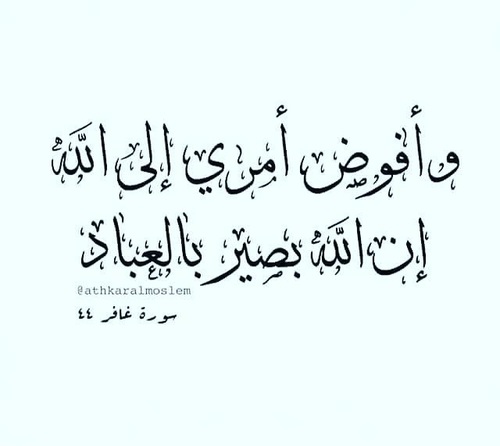 وأفوض أمري إلى الله
إن الله بصير بالعباد
@athkaralmoslem
سورة غافر ٤٤